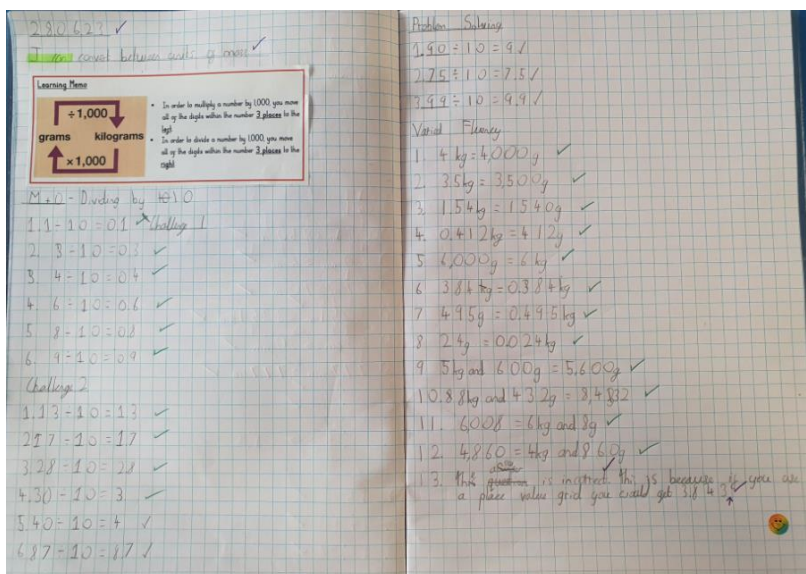 28.06.23
I can convert between units of mass
Learning Memo
÷1,000
grams kilograms
×1,000
• In order to multiply a number by 1,000, you move all of the digits within the number 3 places to the left
• In order to divide a number by 1,000, you move all of the digits within the number 3 places to the right
M+O - Dividing by 10
1. 1÷10=0.1 Challenge 1
2. 3÷10=0.3
3. 4÷10=0.4
4. 6÷10=0.6
5. 8÷10=0.8
6. 9÷10=0.9
Challenge 2
1. 13÷10=1.3
2. 17÷10=1.7
3. 28÷10=2.8
4. 30÷10=3
5. 40÷10=4
6. 87÷10=8.7
Problem Solving
1. 90÷10=9
2. 75÷10=7.5
3. 99÷10=9.9
Varied Fluency
1. 4kg=4,000g
2. 3.5kg=3,500g
3. 1.54kg=1540g
4. 0.412kg=412g
5. 6,000g=6kg
6. 384g=0.384kg
7. 495g=0.495kg
8. 24g=0.024kg
9. 5kg and 600g=5,600g
10. 8kg and 432g=8,432
11. 6,008=6kg and 8g
12. 4,860=4kg and 860g
13. this answer is incorrect this is because if you use
a place value grid you would get 3.843